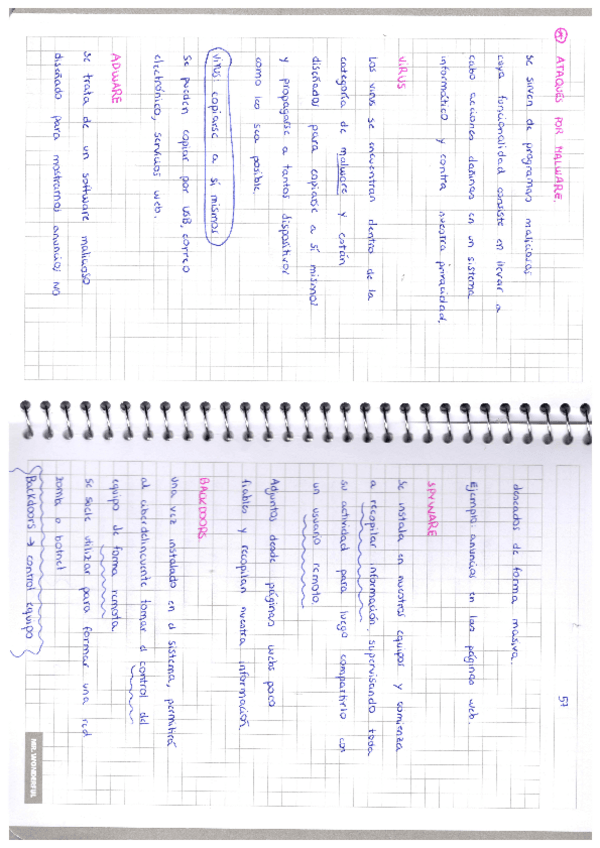 ATAQUES POR MALWARE.
se sirven de programas maliciosos
cuya funcionalidad consiste en llevar a
cabo acciones dañinas en un sistema
informático y contra nuestra privacidad.
VIRUS
Los virus se encuentran dentro de la
categoría de malware y están
diseñados para copiarse a sí mismos
y propagarse a tantos dispositivos
como les sea posible.
VIRUS: copiarse a sí mismos
Se pueden copiar por USB, correo
electrónico, servicios web.
ADWARE
Se trata de un software malicioso
diseñado para mostrarnos anuncios no
57
deseados de forma masiva.
Ejemplo: anuncios en las páginas web.
SPYWARE
Se instala en nuestros equipos y comienza
a recopilar información, supervisando toda
su actividad para luego compartirlo con
un usuario remoto.
Adjuntos desde páginas webs poco
fiables y recopilan nuestra información.
BACKDOORS
Una vez instalado en el sistema, permitirá
al ciberdelincuente tomar el control del
equipo de forma remota.
Se suele utilizar para formar una red
zombi o botnet
Backdoors → control equipo
MR. WONDERFUL